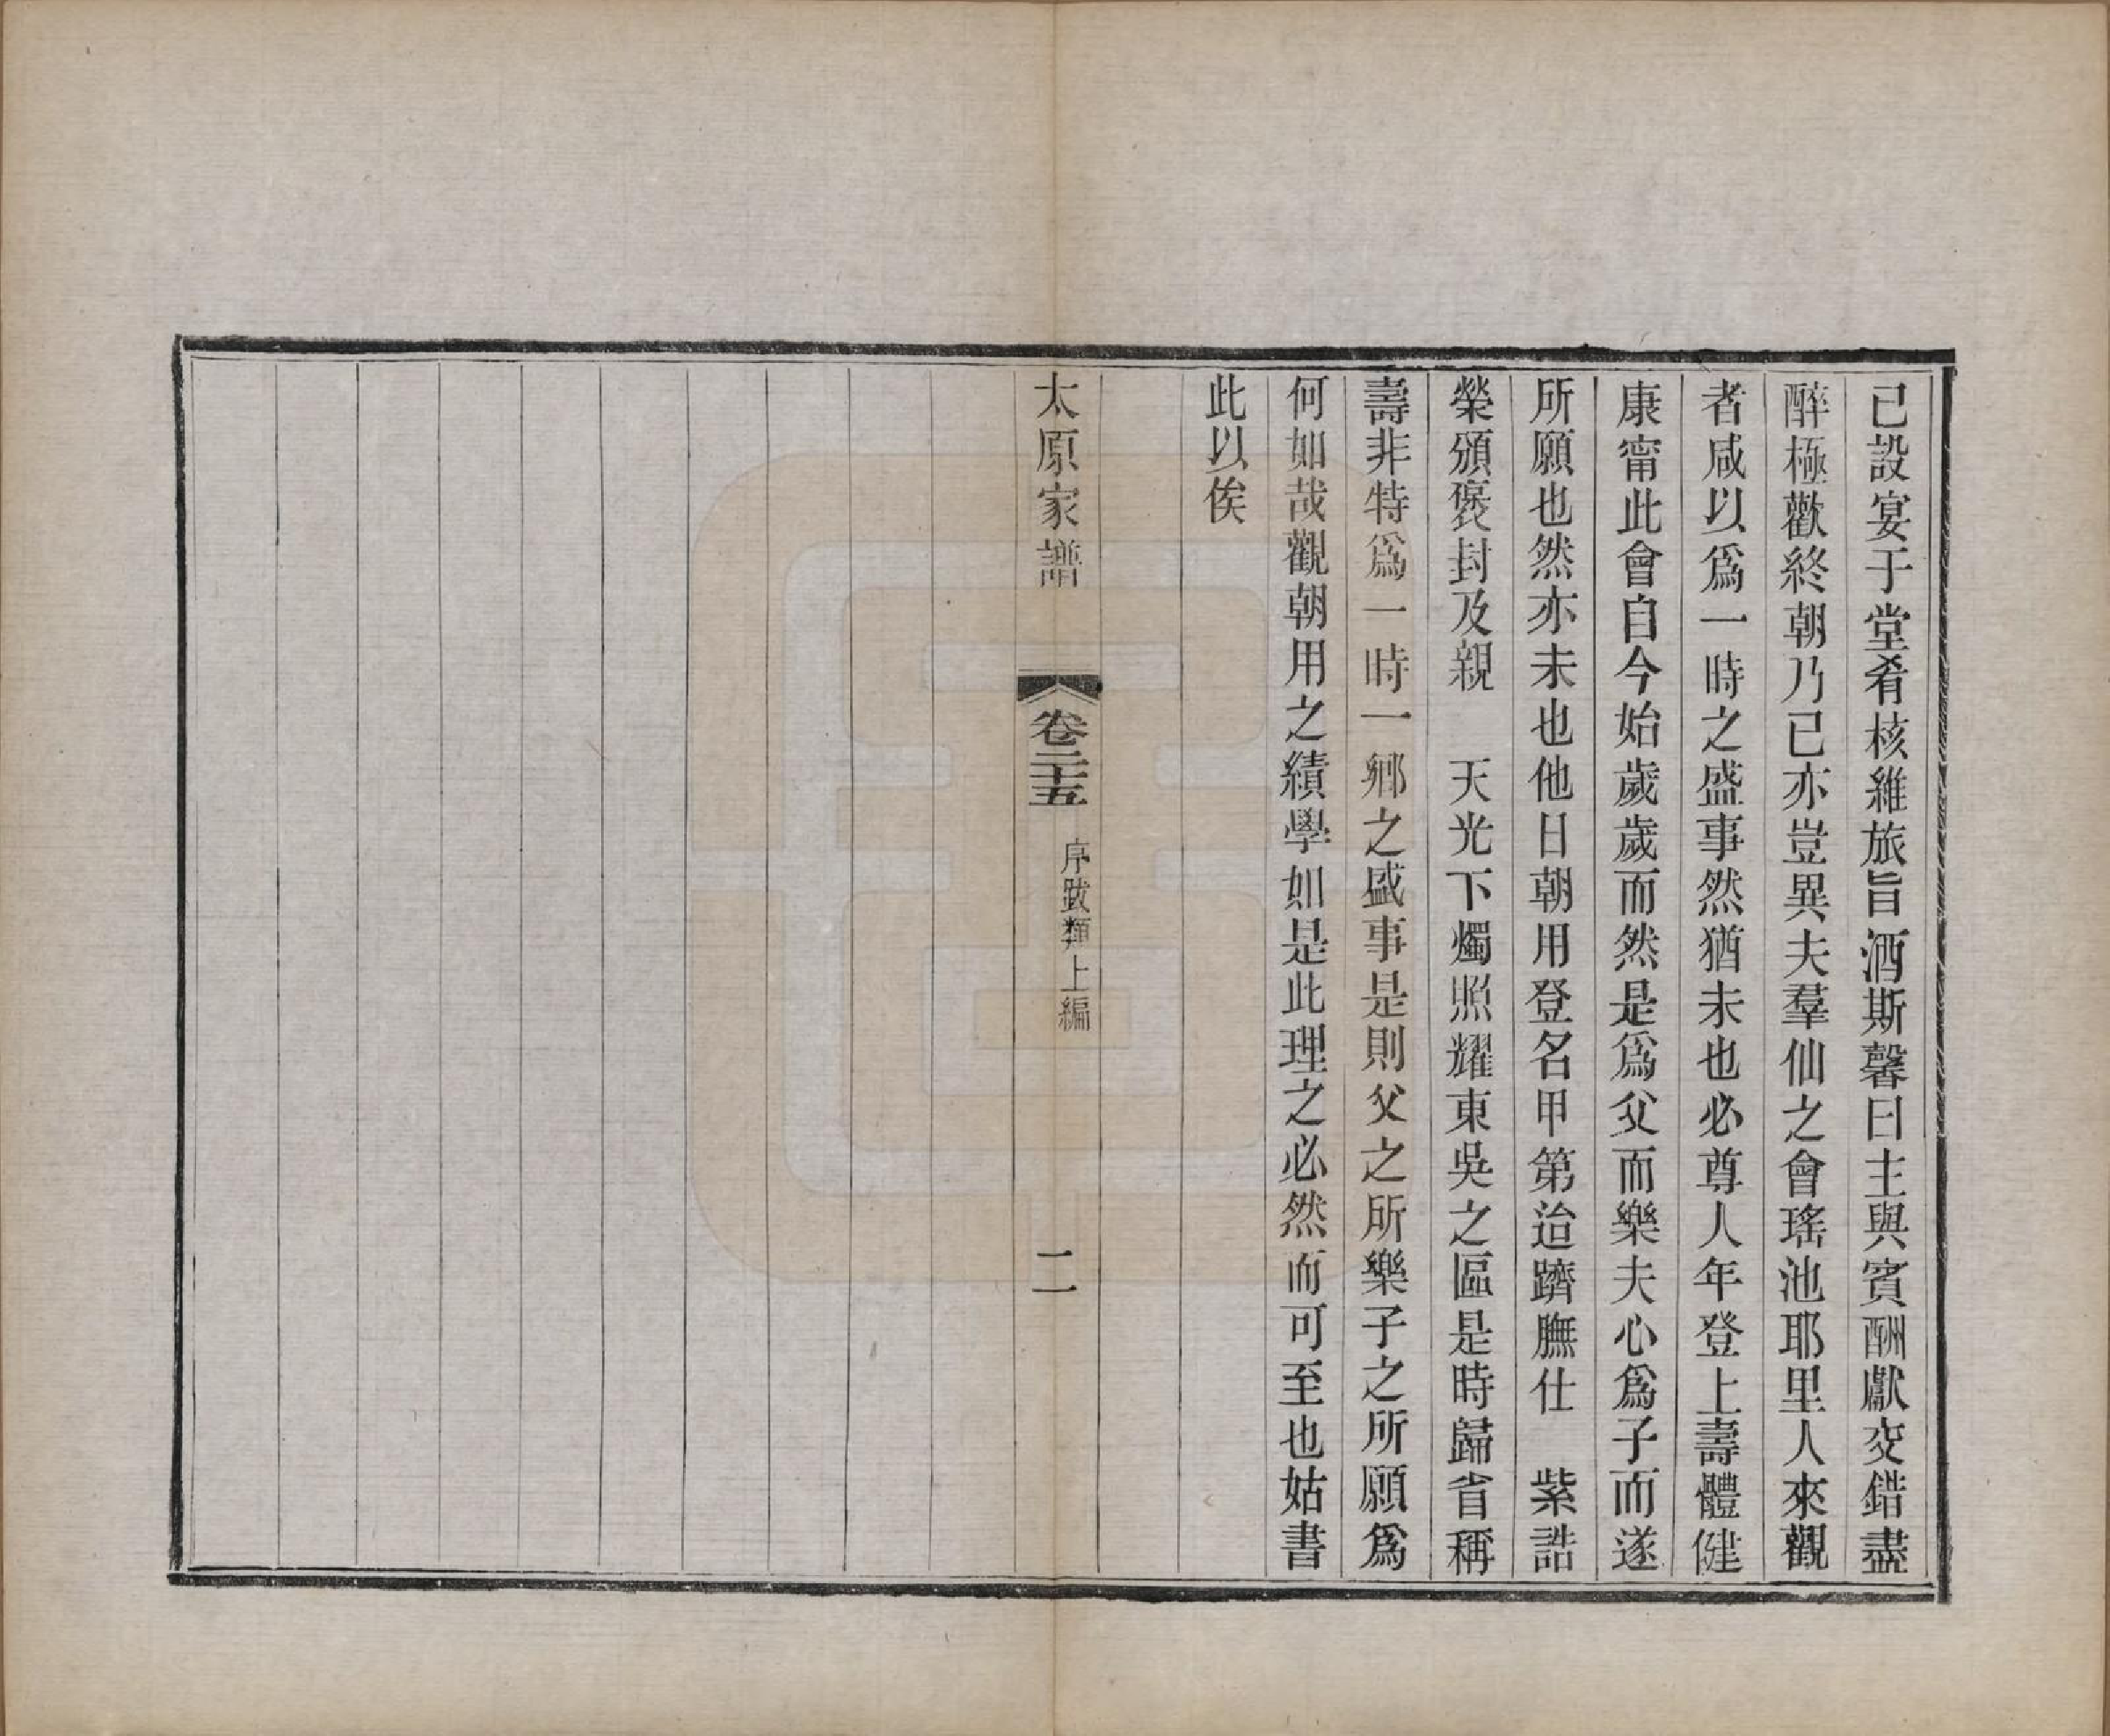 已設宴于堂肴核維旅旨酒斯馨曰主與賓酬獻交錯盡
醉極歡終朝乃已亦豈異夫羣仙之會瑤池耶里人來觀
者咸以爲一時之盛事然猶未也必尊人年登上壽體健
康甯此會自今始歲歲而然是爲父而樂夫心爲子而遂
所願也然亦未也他日朝用登名甲第迨躋膴仕　紫誥
榮頒褒封及親　天光下燭照耀東吳之區是時歸省稱
壽非特爲一時一鄉之盛事是則父之所樂子之所願爲
何如哉觀朝用之績學如是此理之必然而可至也姑書
此以俟
太原家譜　卷二十五　序跋類上編　二